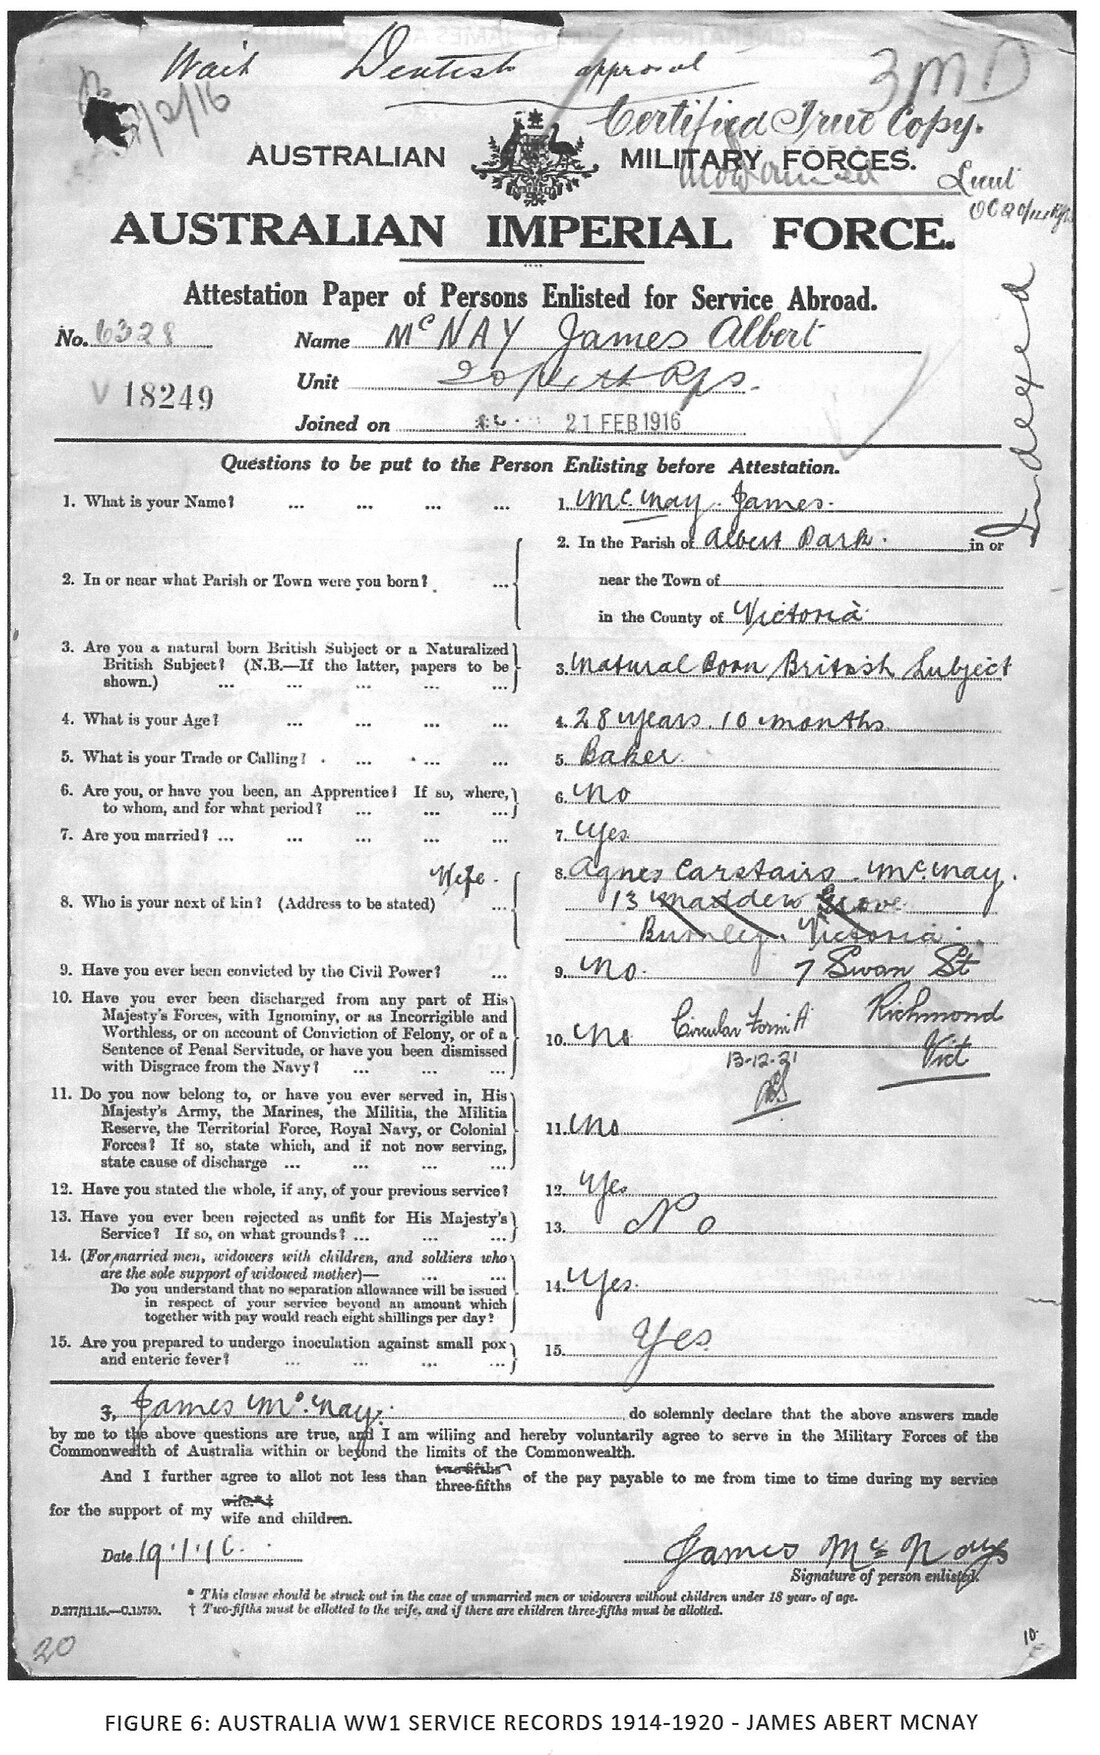 Wait Dentist approval
3 MD
/2/16
Certified True Copy.
AUSTRALIAN MILITARY FORCES.
Lieut
AUSTRALIAN IMPERIAL FORCE.
Attestation Paper of Persons Enlisted for Service Abroad.
No. 6328 Name McNAY James Albert
V 18249 Unit
Joined on 21 FEB 1916
Indexed
Questions to be put to the Person Enlisting before Attestation.
1. What is your Name? ... ... ... ... 1. McNay James.
2. In or near what Parish or Town were you born? ... 2. In the Parish of Albert Park. in or
near the Town of
in the County of Victoria
3. Are you a natural born British Subject or a Naturalized
British Subject? (N.B.—If the latter, papers to be
shown.) ... ... ... ... ... 3. Natural Born British Subject
4. What is your Age? ... ... ... ... 4. 28 years 10 months
5. What is your Trade or Calling? ... ... ... 5. Baker
6. Are you, or have you been, an Apprentice? If so, where,
to whom, and for what period? ... ... ... 6. No
7. Are you married? ... ... ... ... ... 7. Yes
Wife.
8. Who is your next of kin? (Address to be stated) ... 8. Agnes Carstairs McNay.
13 Madden Grove
Burnley. Victoria
7 Swan St
Richmond
Vict
9. Have you ever been convicted by the Civil Power? ... 9. No.
10. Have you ever been discharged from any part of His
Majesty's Forces, with Ignominy, or as Incorrigible and
Worthless, or on account of Conviction of Felony, or of a
Sentence of Penal Servitude, or have you been dismissed
with Disgrace from the Navy? ... ... ... 10. No
Circular Form A
13-12-21
11. Do you now belong to, or have you ever served in, His
Majesty's Army, the Marines, the Militia, the Militia
Reserve, the Territorial Force, Royal Navy, or Colonial
Forces? If so, state which, and if not now serving,
state cause of discharge ... ... ... ... 11. No
12. Have you stated the whole, if any, of your previous service? 12. Yes
13. Have you ever been rejected as unfit for His Majesty's
Service? If so, on what grounds? ... ... ... 13. No
14. (For married men, widowers with children, and soldiers who
are the sole support of widowed mother)— ... ...
Do you understand that no separation allowance will be issued
in respect of your service beyond an amount which
together with pay would reach eight shillings per day? 14. Yes.
15. Are you prepared to undergo inoculation against small pox
and enteric fever? ... ... ... ... 15. Yes
I, James McNay. do solemnly declare that the above answers made
by me to the above questions are true, and I am willing and hereby voluntarily agree to serve in the Military Forces of the
Commonwealth of Australia within or beyond the limits of the Commonwealth.
And I further agree to allot not less than two-fifths three-fifths of the pay payable to me from time to time during my service
for the support of my wife*† wife and children.
Date 19.1.16. James McNay
Signature of person enlisted.
* This clause should be struck out in the case of unmarried men or widowers without children under 18 years of age.
D.277/11.15.—C.15750. † Two-fifths must be allotted to the wife, and if there are children three-fifths must be allotted.
20
10
FIGURE 6: AUSTRALIA WW1 SERVICE RECORDS 1914-1920 - JAMES ABERT MCNAY